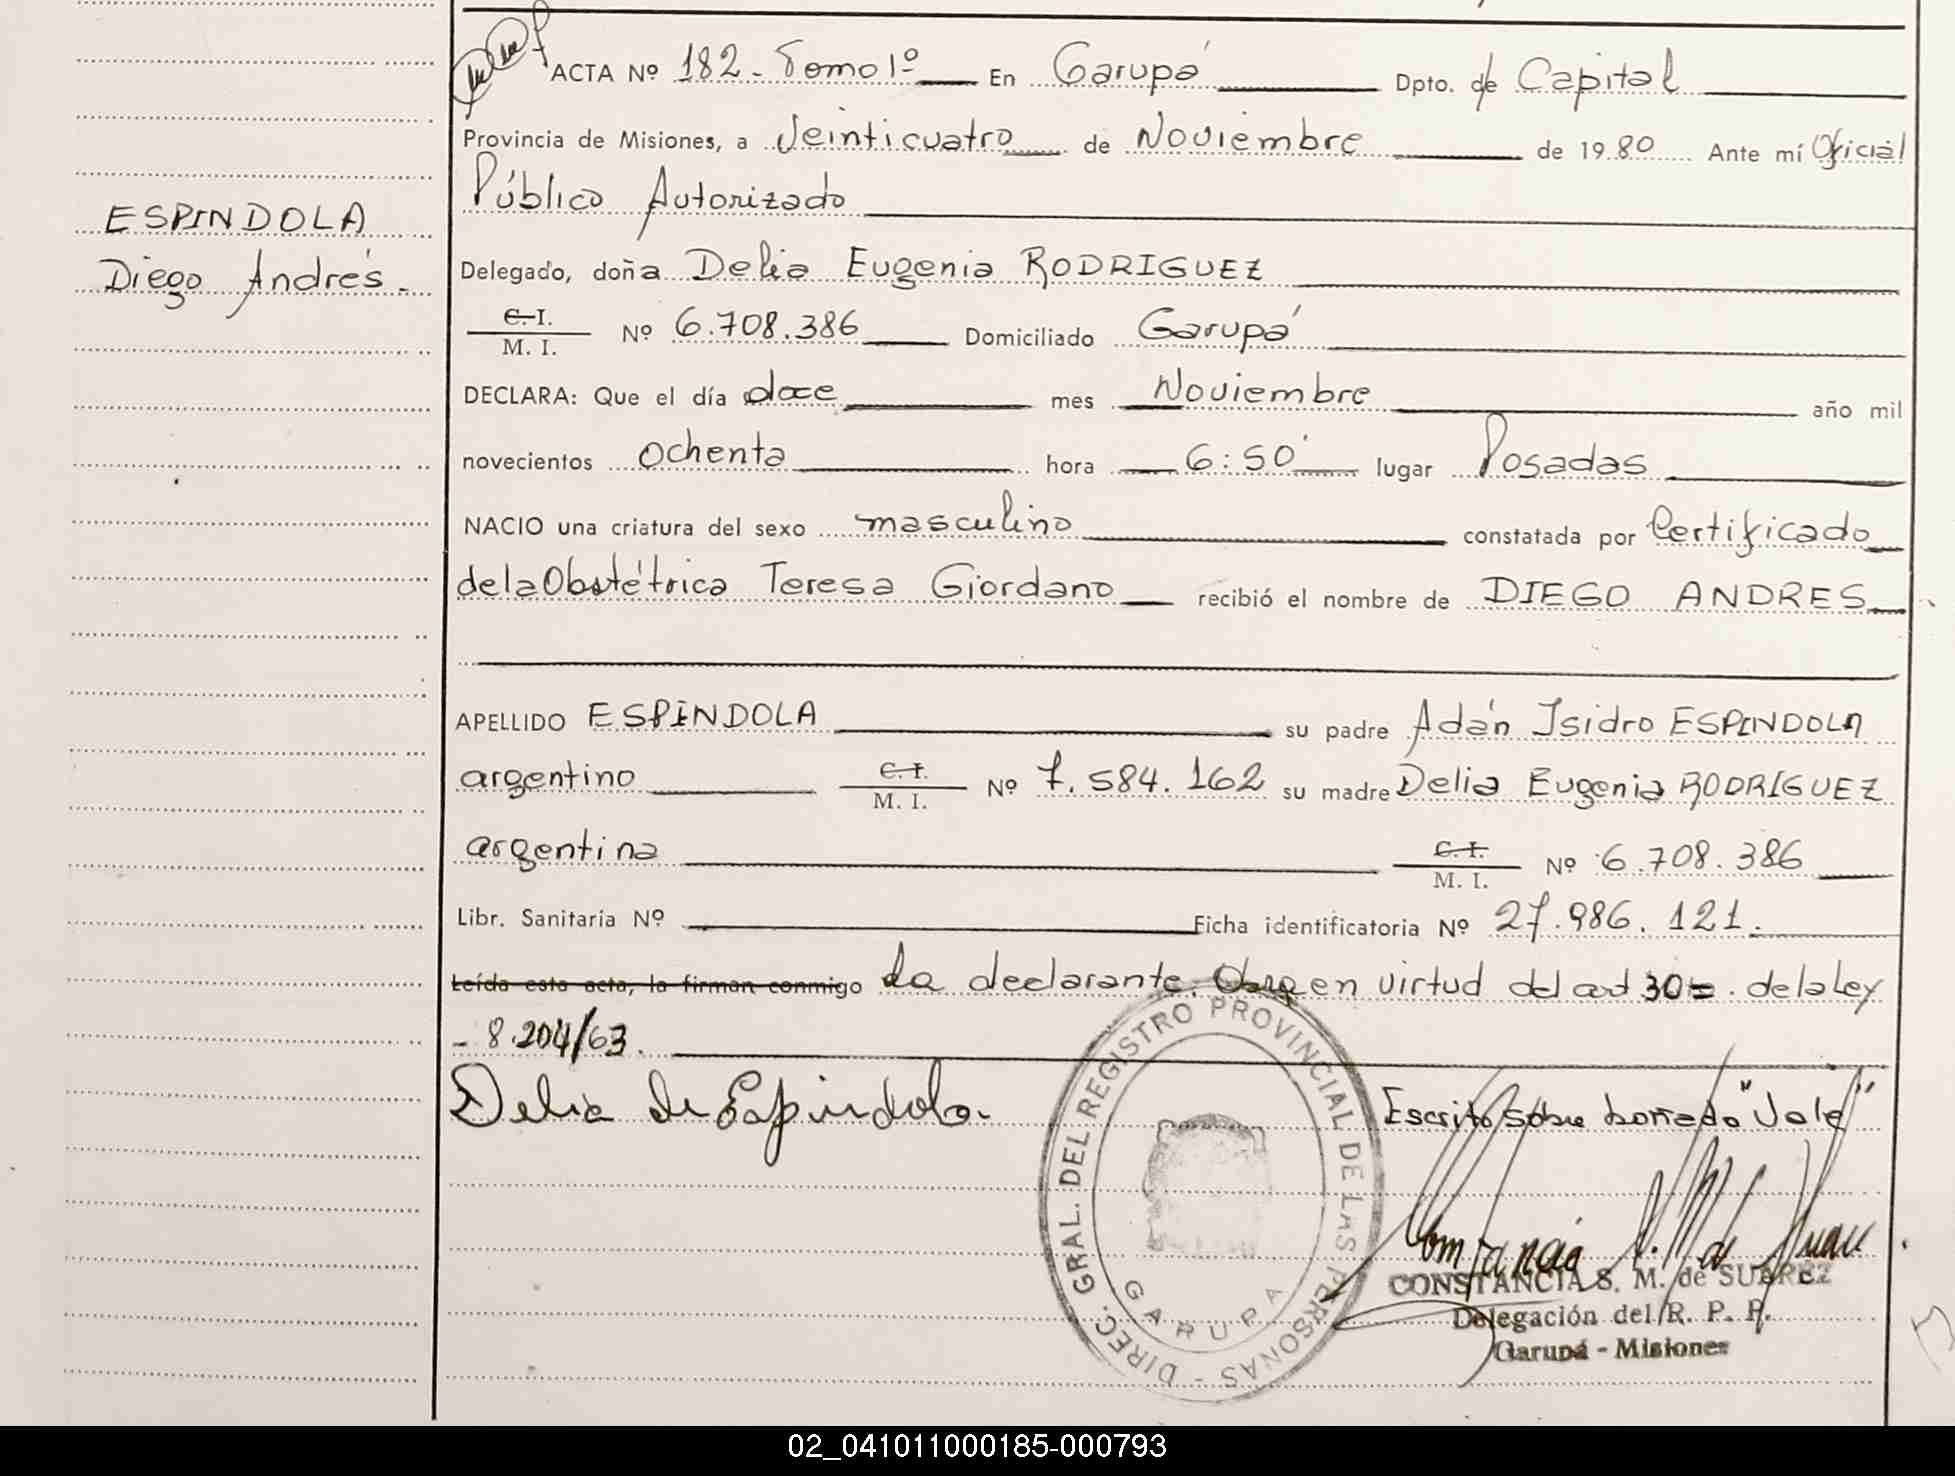 ACTA Nº 182 - Tomo 1º En Garupá Dpto. de Capital
Provincia de Misiones, a Veinticuatro de Noviembre de 1980 Ante mí Oficial
Público Autorizado
ESPINDOLA
Diego Andrés.-
Delegado, doña Delia Eugenia RODRIGUEZ
C. I.
M. I. Nº 6.708.386 Domiciliado Garupá
DECLARA: Que el día doce mes Noviembre año mil
novecientos ochenta hora 6:50' lugar Posadas
NACIO una criatura del sexo masculino constatada por Certificado
de la Obstétrica Teresa Giordano recibió el nombre de DIEGO ANDRES
APELLIDO ESPINDOLA su padre Adán Isidro ESPINDOLA
argentino C. I.
M. I. Nº 7.584.162 su madre Delia Eugenia RODRIGUEZ
argentina C. I.
M. I. Nº 6.708.386
Libr. Sanitaria Nº Ficha identificatoria Nº 27.986.121.
Leída esta acta, la firman conmigo La declarante. en virtud del art 30 de la Ley
- 8.204/63.
Delia de Espindola.
Escrito sobre borrado "Vale"
DIREC. GRAL. DEL REGISTRO PROVINCIAL DE LAS PERSONAS -
GARUPA
CONSTANCIA S. M. de SUAREZ
Delegación del R. P. P.
Garupá - Misiones
02_041011000185-000793